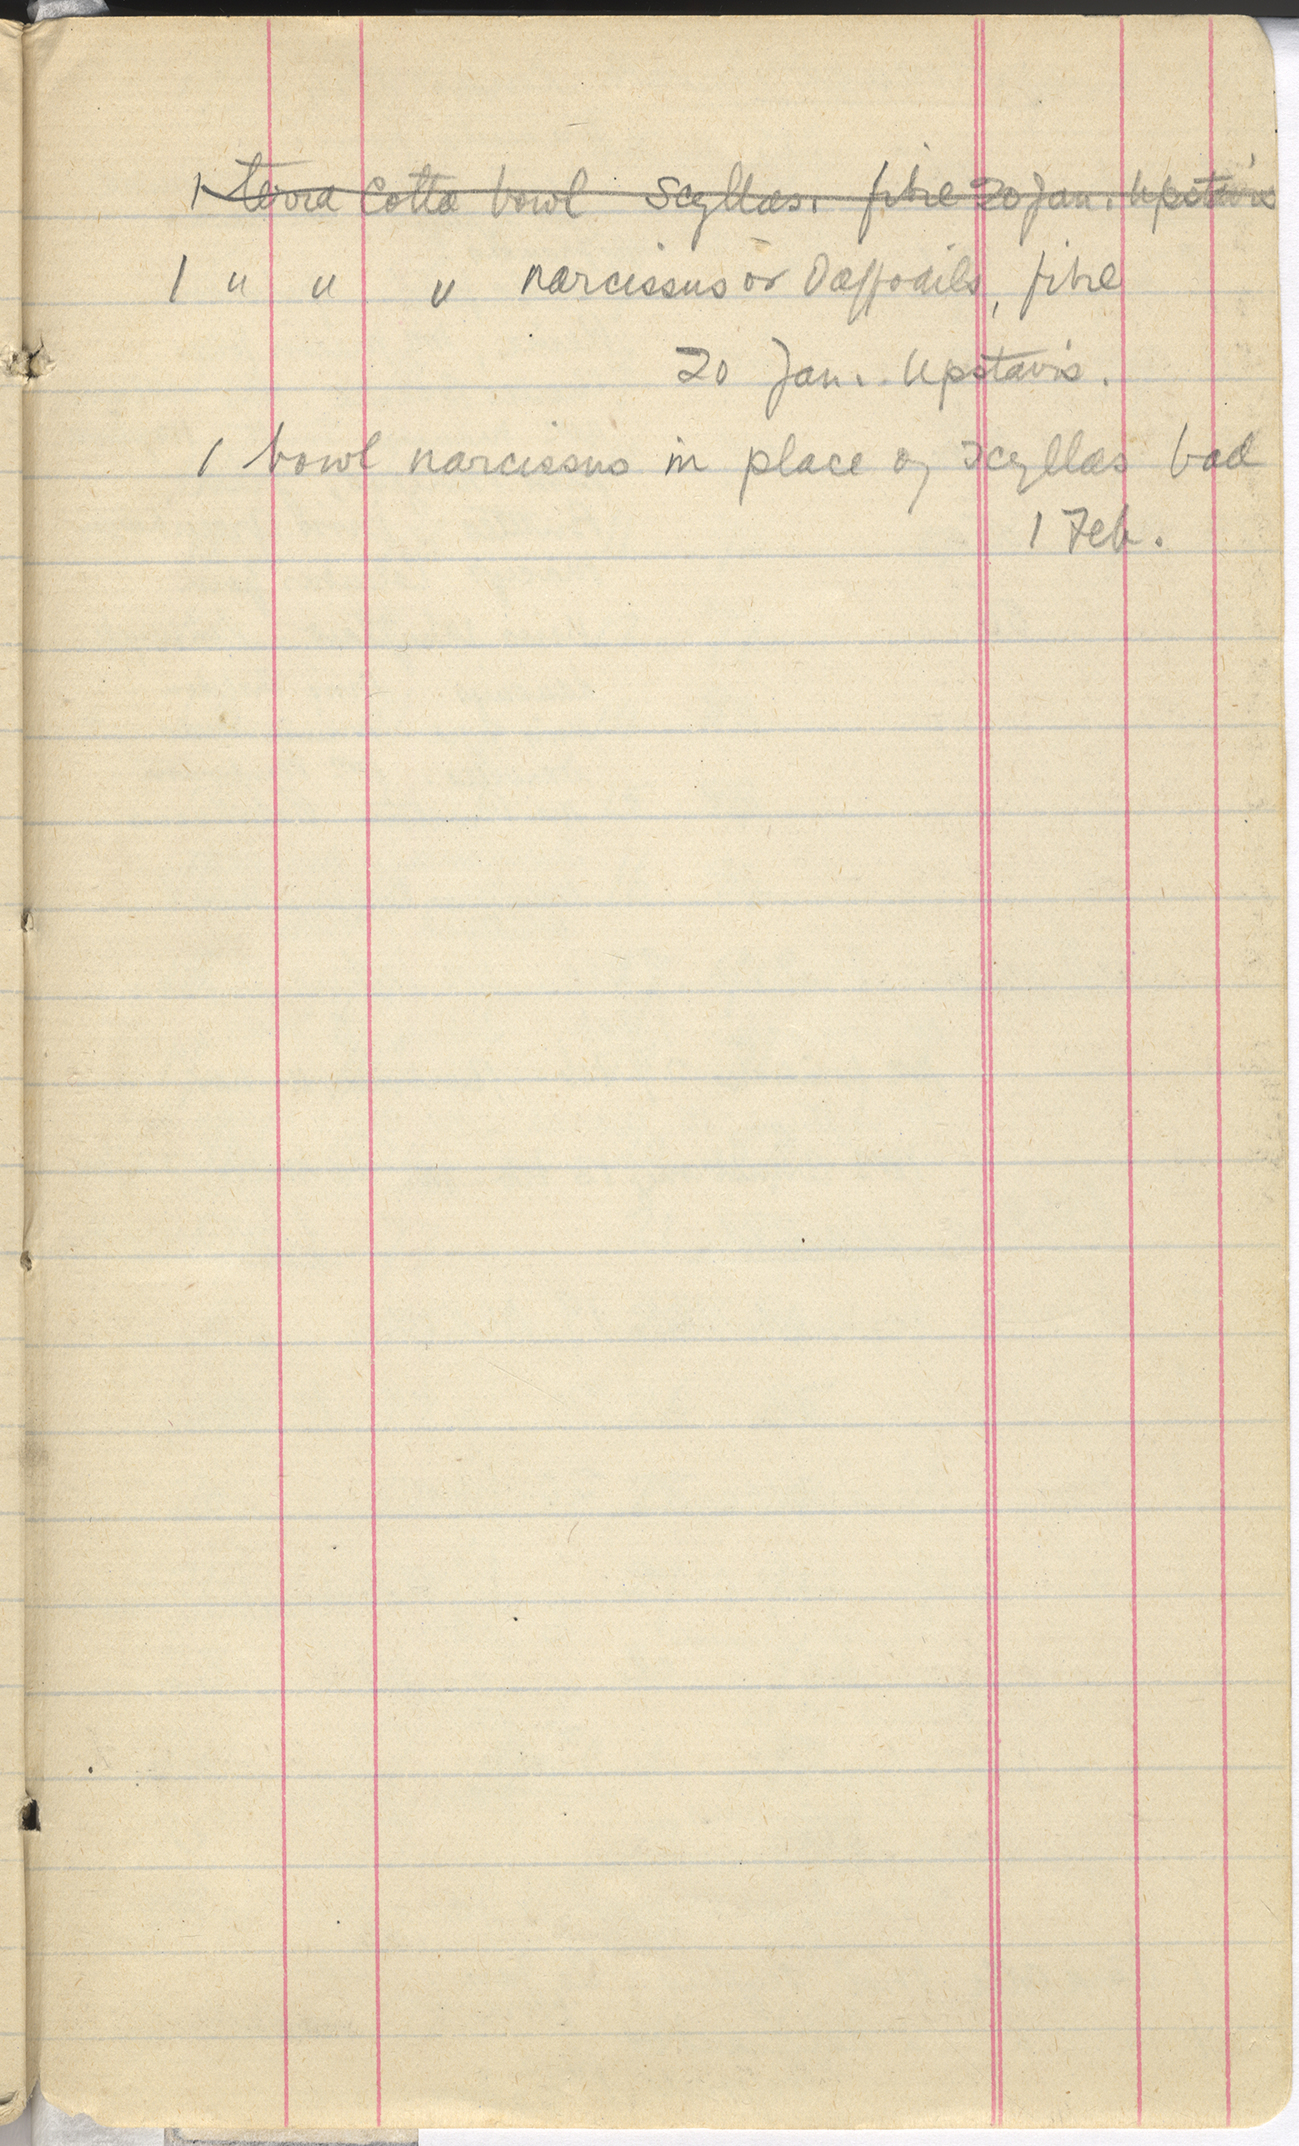 1 terra cotta bowl Scyllas. fibre 20 Jan. Upstairs
1 " " " narcissus or Daffodils, fibre
20 Jan. Upstairs.
1 bowl narcissus in place of scyllas bad
1 Feb.